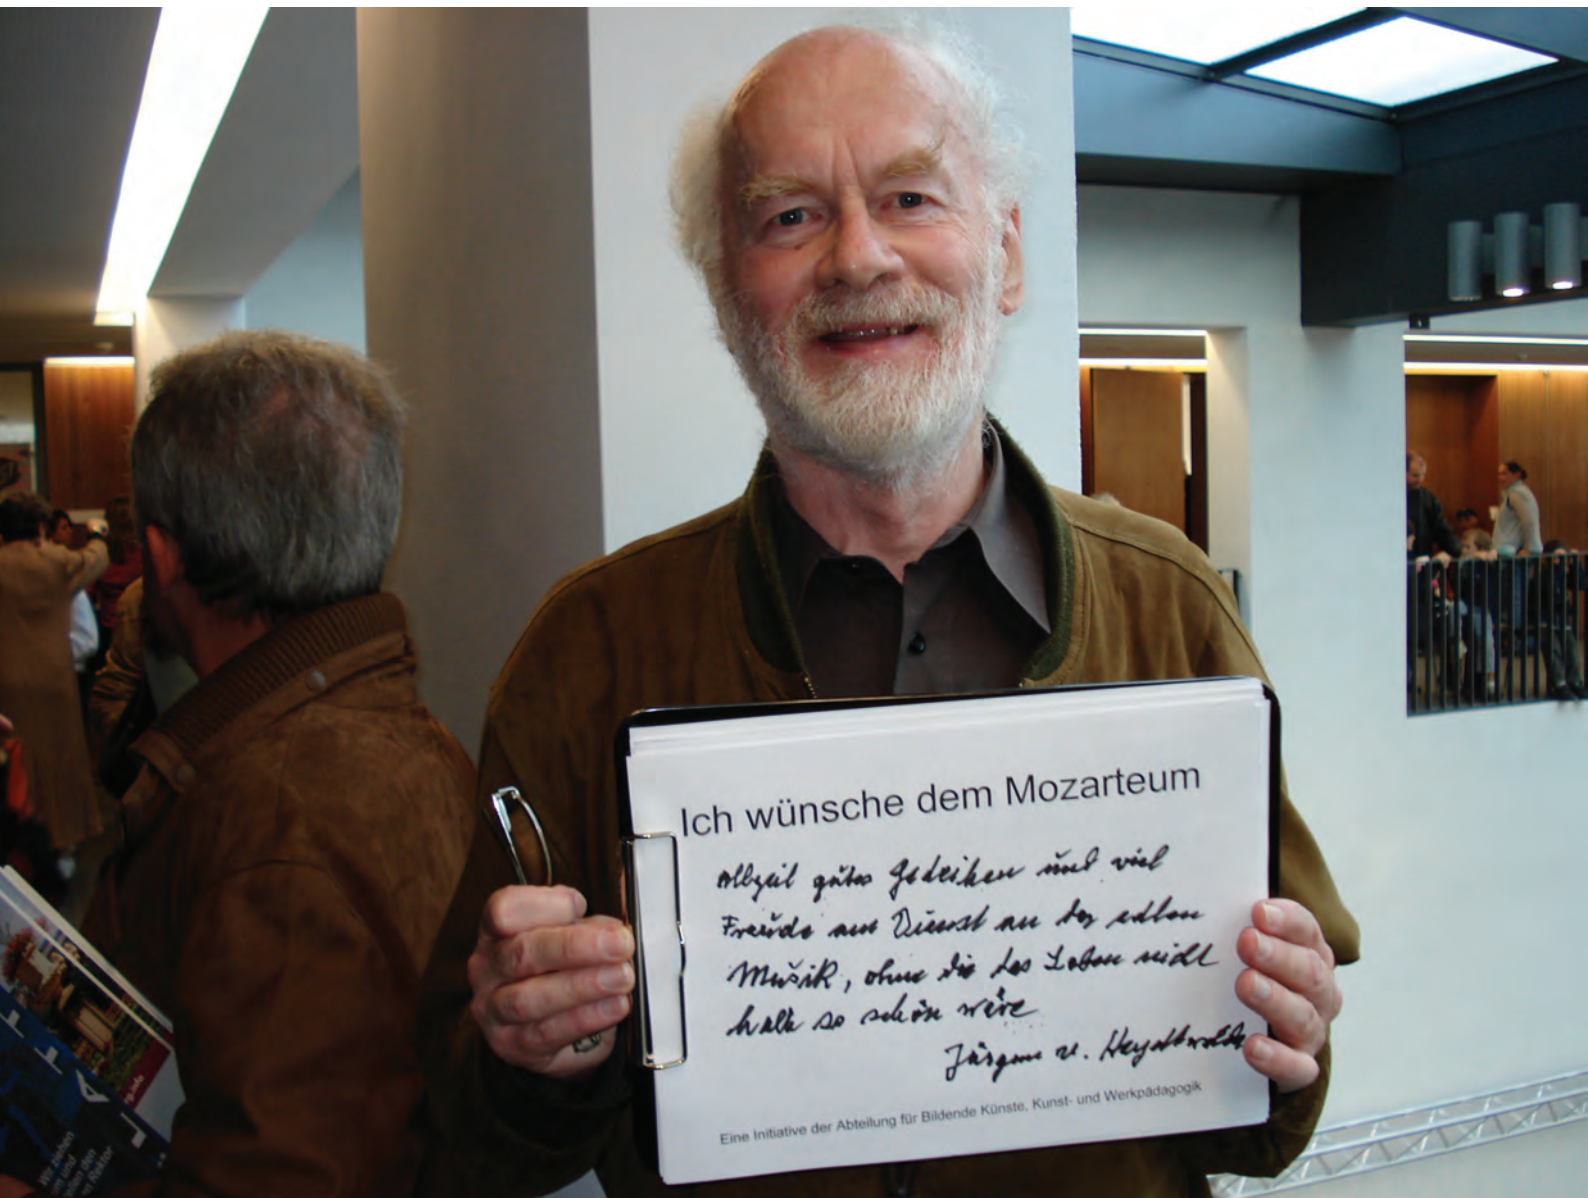 Ich wünsche dem Mozarteum
allzeit gutes Gedeihen und viel
Freude am Dienst an der edlen
Musik, ohne die das Leben nicht
halb so schön wäre
Jürgen v.
Eine Initiative der Abteilung für Bildende Künste, Kunst- und Werkpädagogik
Wir ziehen
um und
den
Rektor